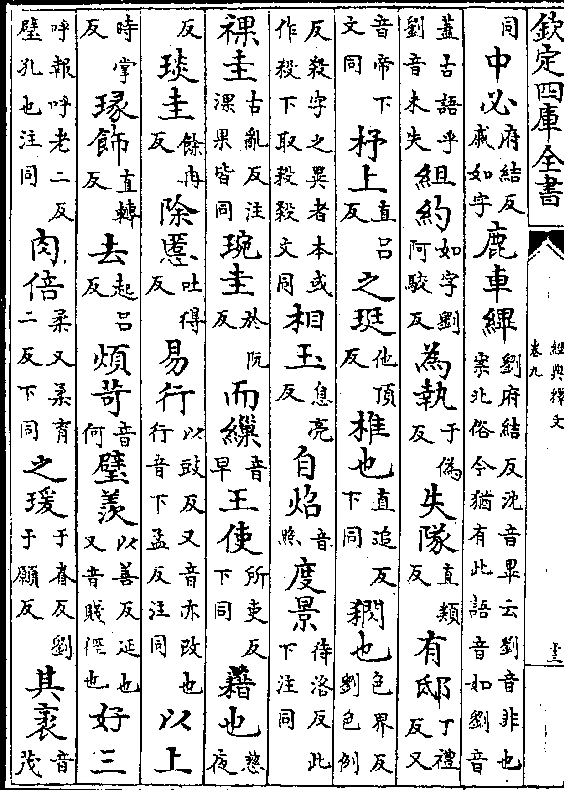 欽定四庫全書
經典釋文
卷九
同中必府結反戚如字鹿車縪劉府結反沈音畢云劉音非也案北俗今猶有此語音如劉音
蓋古語乎劉音未失組約如字劉阿駮反為執于偽反失隊直類反有邸丁禮反又
音帝下文同杼上直呂反之珽他頂反椎也直追反下同閷也色界反劉色例
反殺字之異者本或作殺下取殺殺文同相玉息亮反自炤音照度景待洛反此下注同
祼圭古亂反注淉果皆同琬圭於阮反而繅音早王使所吏反下同藉也慈夜
反琰圭餘冉反除慝吐得反易行以豉反又音亦改也行音下孟反注同以上
時掌反瑑飾直轉反去起呂反煩苛音何璧羨以善反延也又音賤徑也好三
呼報呼老二反璧孔也注同肉倍柔又柔育二反下同之瑗于眷反劉于願反其袤音茂